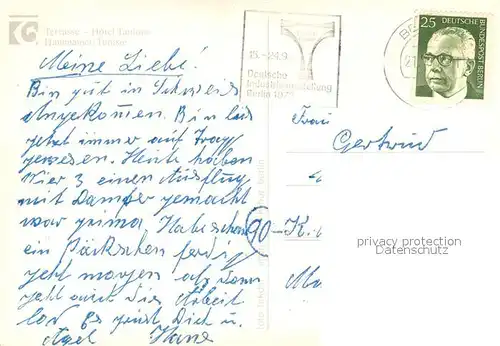 Terrasse - Hôtel Tanfous
Hammamet, Tunisie
Meine Liebe!
Bin gut in
angekommen. Bin bis
jetzt immer auf
gewesen. Heute haben
Wier 3 einen Ausflug
mit Dampfer gemacht
war prima Habe schon
ein Päckschen ferdig
geht morgen ab, dann
geht auch die Arbeit
los Es grüsst Dich u.
Hans
15.-24.9.
Deutsche
Industrieausstellung
Berlin
25
DEUTSCHE
BUNDESPOST BERLIN
Frau
Gertrud
90-K.
privacy protection
Datenschutz